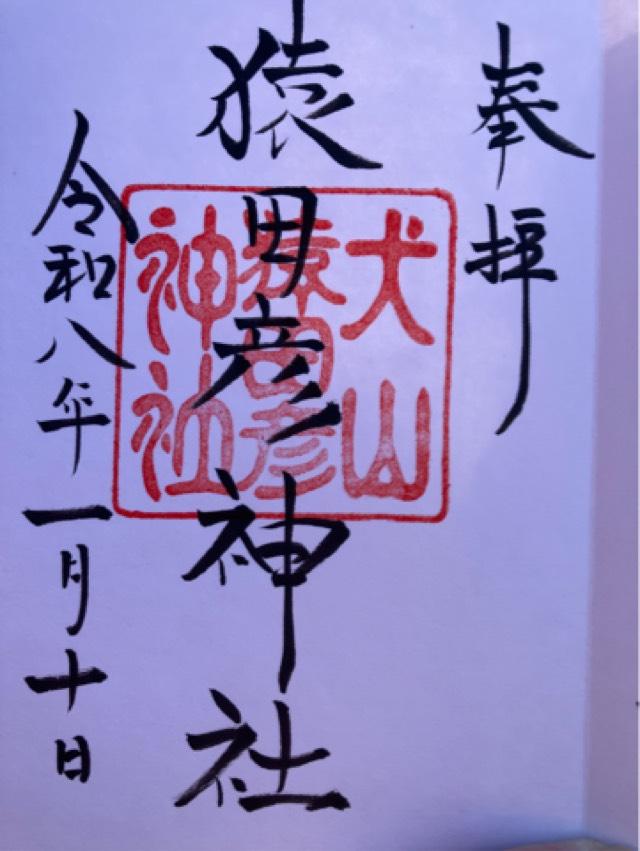 奉拝
犬山
猿田彦
神社
猿田彦神社
令和八年一月十日